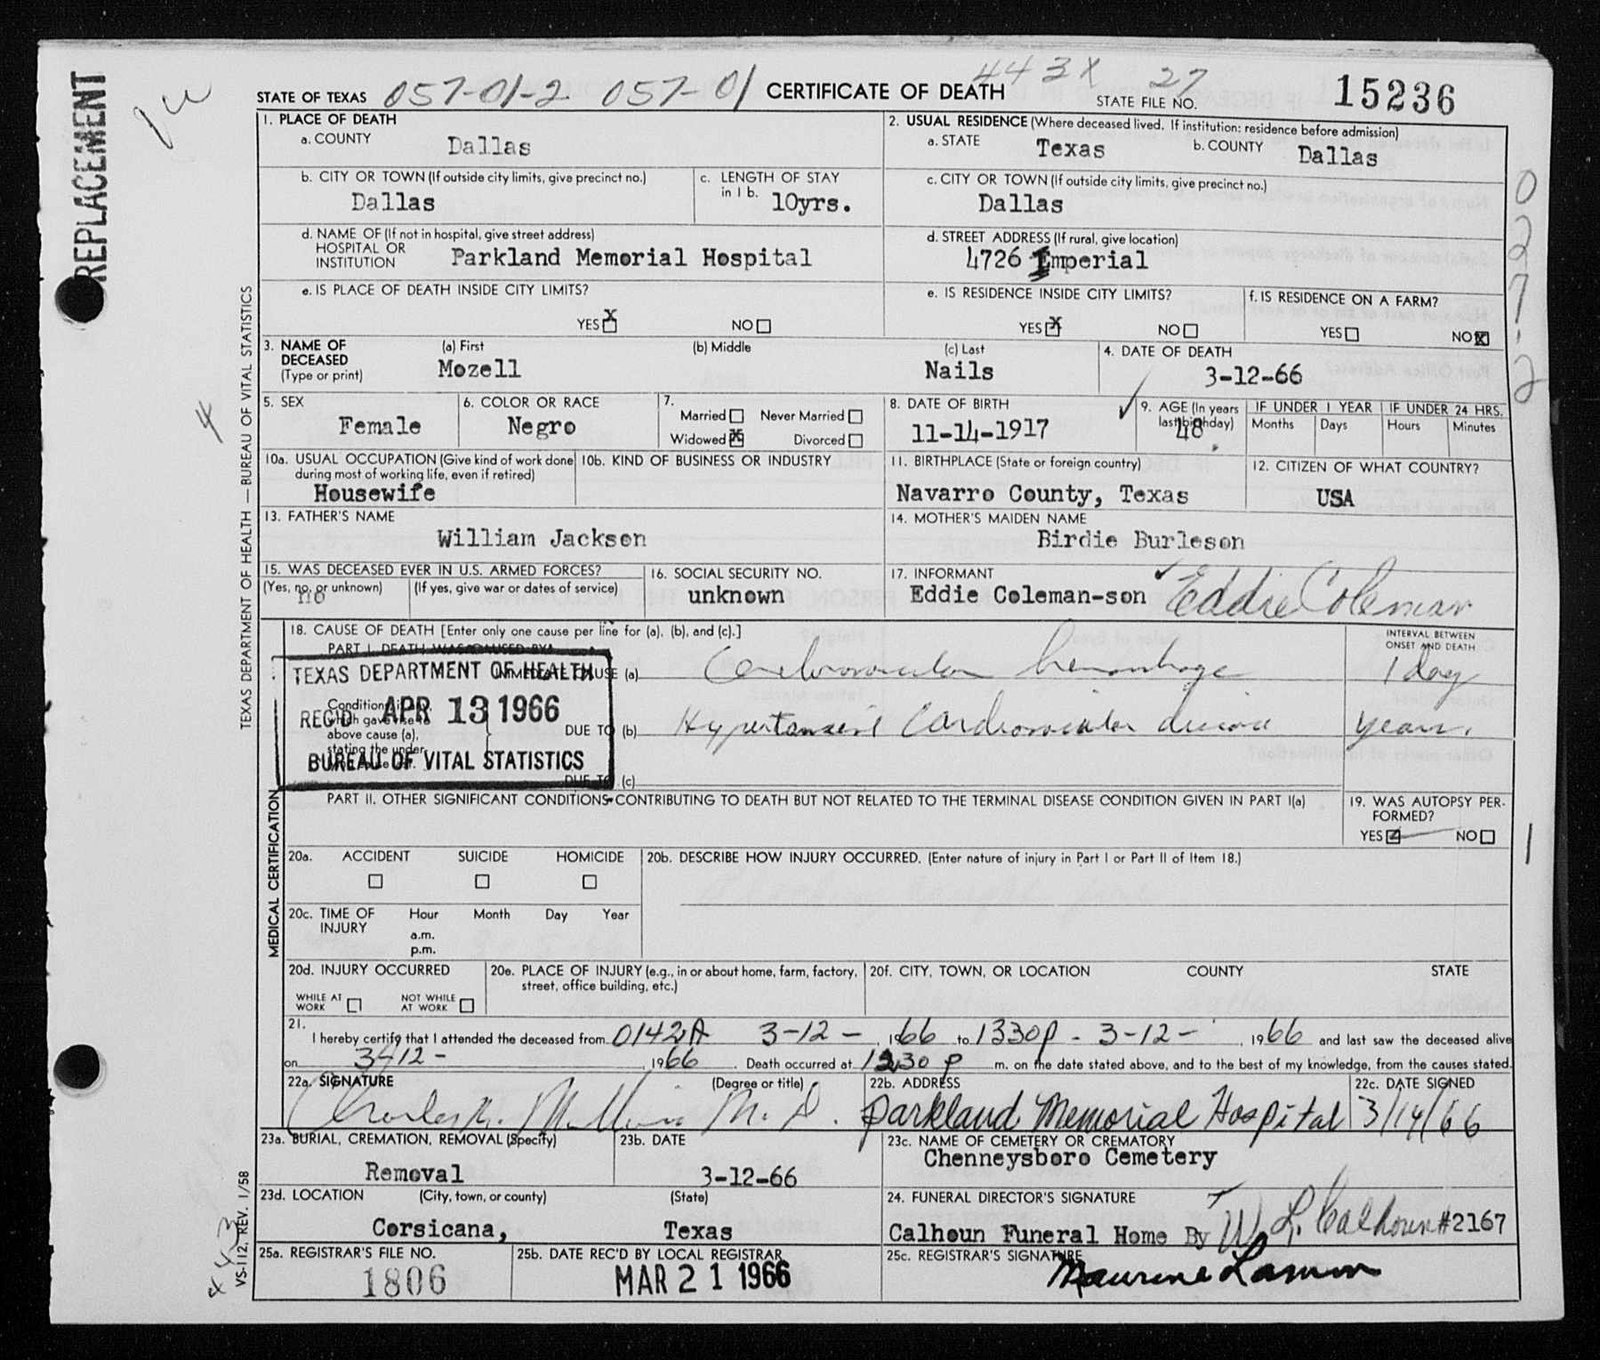 REPLACEMENT
STATE OF TEXAS 057-01-2 057-01 CERTIFICATE OF DEATH 443X 27 STATE FILE NO. 15236
1. PLACE OF DEATH
a. COUNTY Dallas
2. USUAL RESIDENCE (Where deceased lived. If institution: residence before admission)
a. STATE Texas b. COUNTY Dallas
b. CITY OR TOWN (If outside city limits, give precinct no.) Dallas
c. LENGTH OF STAY in 1 b. 10yrs.
c. CITY OR TOWN (If outside city limits, give precinct no.) Dallas
d. NAME OF (If not in hospital, give street address)
HOSPITAL OR
INSTITUTION Parkland Memorial Hospital
d. STREET ADDRESS (If rural, give location)
4726 Imperial
e. IS PLACE OF DEATH INSIDE CITY LIMITS?
YES X NO
e. IS RESIDENCE INSIDE CITY LIMITS?
YES X NO
f. IS RESIDENCE ON A FARM?
YES NO X
0
2
7
2
3. NAME OF DECEASED (Type or print)
(a) First Mozell
(b) Middle
(c) Last Nails
4. DATE OF DEATH
3-12-66
5. SEX Female
6. COLOR OR RACE Negro
7. Married Never Married
Widowed X Divorced
8. DATE OF BIRTH 11-14-1917
9. AGE (In years last birthday) 48
IF UNDER 1 YEAR Months Days
IF UNDER 24 HRS. Hours Minutes
10a. USUAL OCCUPATION (Give kind of work done
during most of working life, even if retired)
Housewife
10b. KIND OF BUSINESS OR INDUSTRY
11. BIRTHPLACE (State or foreign country)
Navarro County, Texas
12. CITIZEN OF WHAT COUNTRY?
USA
13. FATHER'S NAME
William Jackson
14. MOTHER'S MAIDEN NAME
Birdie Burleson
15. WAS DECEASED EVER IN U.S. ARMED FORCES?
(Yes, no, or unknown) no (If yes, give war or dates of service)
16. SOCIAL SECURITY NO.
unknown
17. INFORMANT
Eddie Coleman-son Eddie Coleman
18. CAUSE OF DEATH [Enter only one cause per line for (a), (b), and (c).]
INTERVAL BETWEEN
ONSET AND DEATH
PART I. DEATH WAS CAUSED BY:
IMMEDIATE CAUSE (a) Cerebrovascular hemorrhage 1 day
Conditions
which gave rise to
above cause (a),
stating the under
DUE TO (b) Hypertensive Cardiovascular disease years.
DUE TO (c)
TEXAS DEPARTMENT OF HEALTH
REC'D APR 13 1966
BUREAU OF VITAL STATISTICS
PART II. OTHER SIGNIFICANT CONDITIONS CONTRIBUTING TO DEATH BUT NOT RELATED TO THE TERMINAL DISEASE CONDITION GIVEN IN PART I(a)
19. WAS AUTOPSY PER-
FORMED?
YES NO
1
20a. ACCIDENT SUICIDE HOMICIDE
20b. DESCRIBE HOW INJURY OCCURRED. (Enter nature of injury in Part I or Part II of Item 18.)
20c. TIME OF INJURY Hour Month Day Year
a.m.
p.m.
20d. INJURY OCCURRED
WHILE AT WORK NOT WHILE AT WORK
20e. PLACE OF INJURY (e.g., in or about home, farm, factory,
street, office building, etc.)
20f. CITY, TOWN, OR LOCATION COUNTY STATE
21.
I hereby certify that I attended the deceased from 0142A 3-12-, 1966 to 1330p - 3-12-, 1966 and last saw the deceased alive
on 3-12-, 1966. Death occurred at 1330 p m. on the date stated above, and to the best of my knowledge, from the causes stated.
22a. SIGNATURE (Degree or title)
M.D.
22b. ADDRESS
Parkland Memorial Hospital
22c. DATE SIGNED
3/14/66
23a. BURIAL, CREMATION, REMOVAL (Specify)
Removal
23b. DATE
3-12-66
23c. NAME OF CEMETERY OR CREMATORY
Chenneysboro Cemetery
23d. LOCATION (City, town, or county) (State)
Corsicana, Texas
24. FUNERAL DIRECTOR'S SIGNATURE
Calhoun Funeral Home By W. L. Calhoun #2167
25a. REGISTRAR'S FILE NO.
1806
25b. DATE REC'D BY LOCAL REGISTRAR
MAR 21 1966
25c. REGISTRAR'S SIGNATURE
TEXAS DEPARTMENT OF HEALTH — BUREAU OF VITAL STATISTICS
MEDICAL CERTIFICATION
VS-112, REV. 1/58
4
443